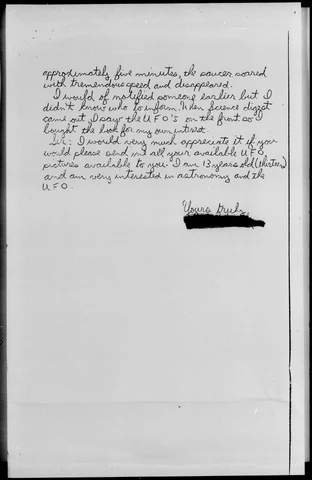 approximately five minutes, the saucer soared
with tremendous speed and disappeared.
I would of notified someone earlier but I
didn't know who to inform. When Science digest
came out I saw the UFO's on the front so I
bought the book for my own intrest.
Sir: I would very much appreciate it if you
would please send me all your available UFO
pictures available to you. I am 13 years old (thirteen)
and am very interested in astronomy and the
UFO.
Yours truly,